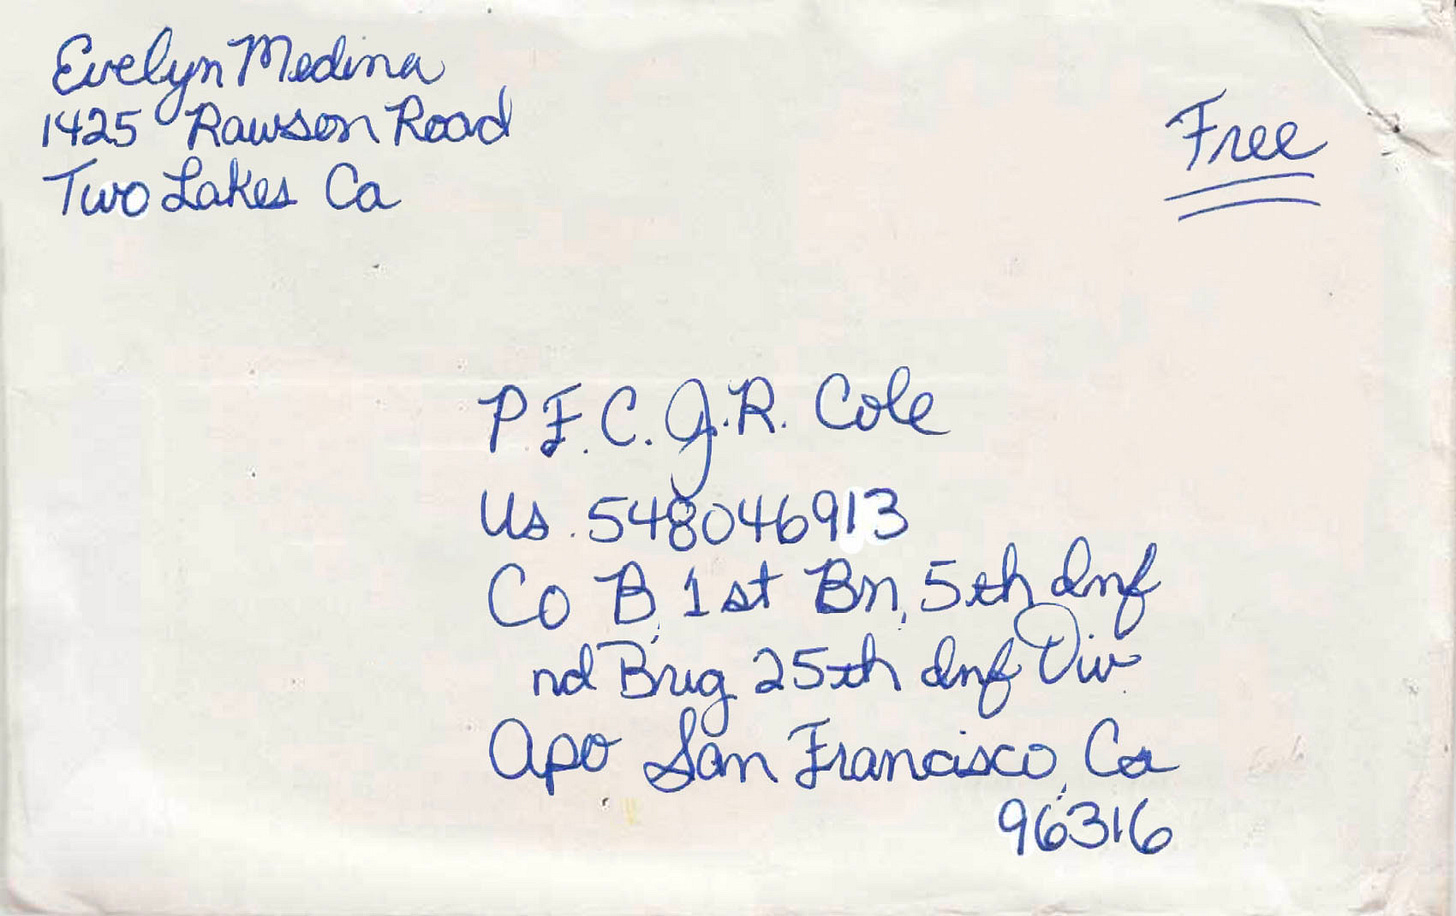 Evelyn Medina
1425 Rawson Road
Two Lakes Ca
Free
P.F.C. J.R. Cole
Us. 548046913
Co B, 1st Bn, 5th Inf
nd Brig 25th Inf Div
Apo San Francisco, Ca
96316